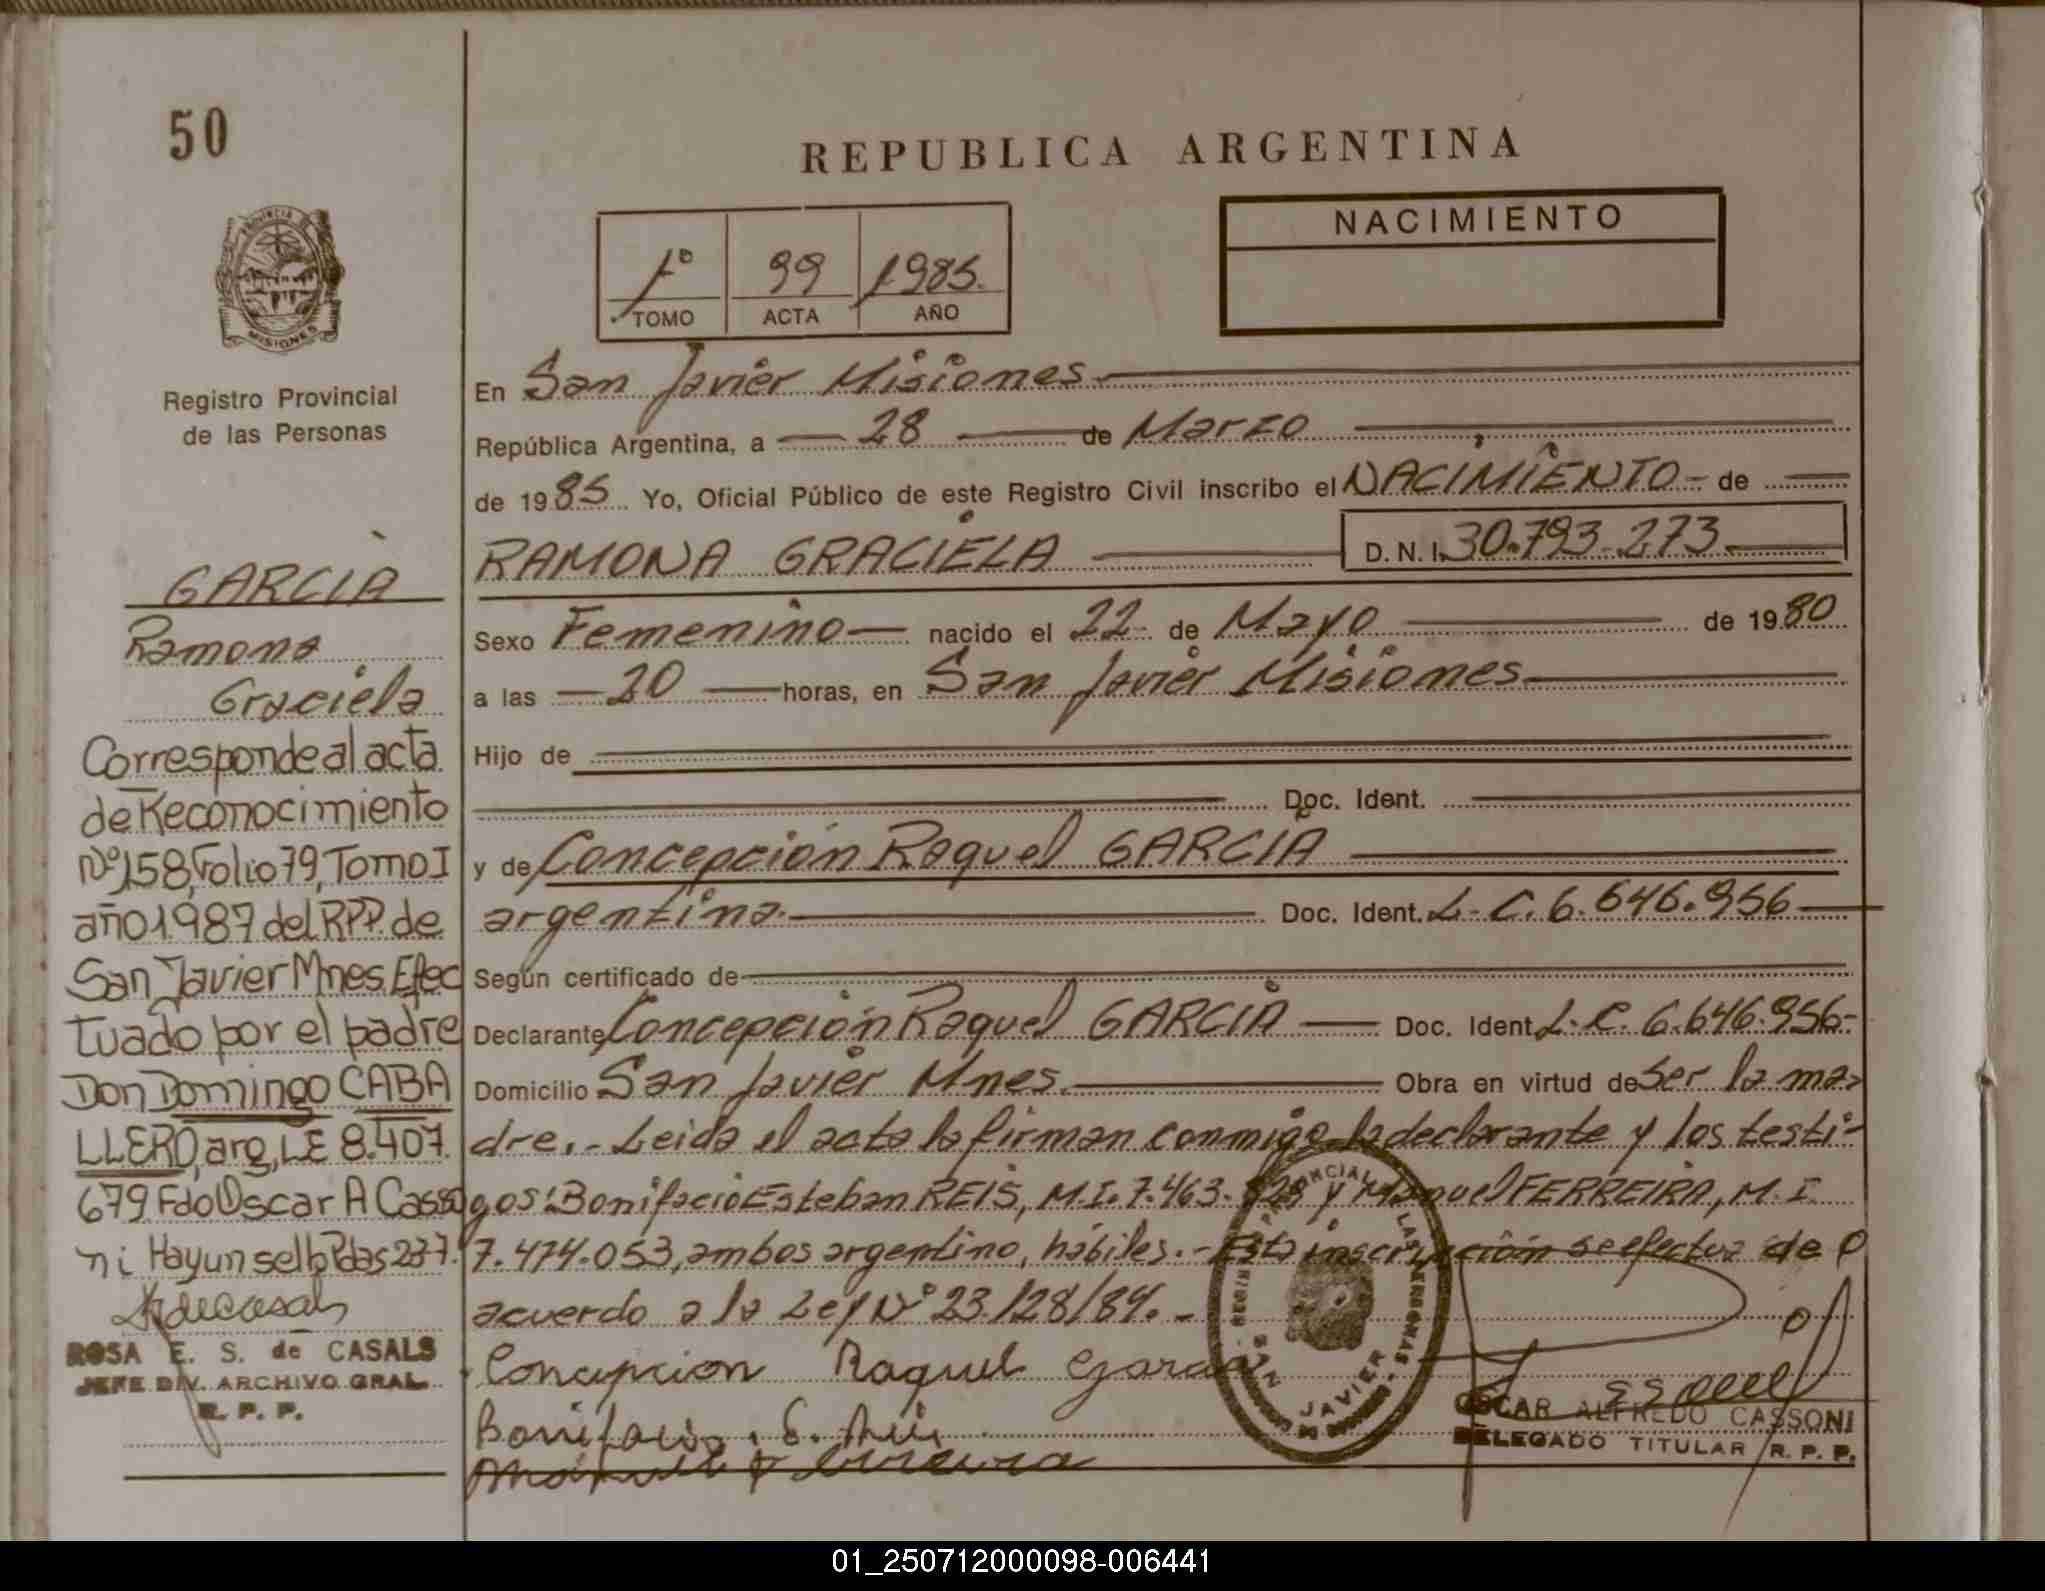 50
REPUBLICA ARGENTINA
NACIMIENTO
1º 99 1985.
TOMO ACTA AÑO
PROVINCIA DE
MISIONES
Registro Provincial
de las Personas
GARCIA
Ramona
Graciela
Corresponde al acta
de Reconocimiento
Nº158, Folio 79, Tomo I
año 1987 del R.P.P. de
San Javier Mnes. Efec
tuado por el padre
Don Domingo CABA
LLERO, arg, LE 8.407.
679 Fdo Oscar A Casso
ni Hay un sello Pdas 237.
ROSA E. S. de CASALS
JEFE DIV. ARCHIVO GRAL.
R. P. P.
En San Javier Misiones
República Argentina, a 28 de Marzo
de 1985 Yo, Oficial Público de este Registro Civil inscribo el NACIMIENTO de
RAMONA GRACIELA D. N. I. 30.793.273
Sexo Femenino nacido el 22 de Mayo de 1980
a las 20 horas, en San Javier Misiones
Hijo de
Doc. Ident.
y de Concepción Raquel GARCIA
argentina. Doc. Ident. L. C. 6.646.956
Según certificado de
Declarante Concepción Raquel GARCIA Doc. Ident. L. C. 6.646.956-
Domicilio San Javier Mnes. Obra en virtud de ser la ma
dre.- Leida el acta la firman conmigo la declarante y los testi-
gos: Bonifacio Esteban REIS, M.I. 7.463. y Manuel FERREIRA, M.I.
7.474.053, ambos argentino, hábiles.- Esta inscripción se efectua de
acuerdo a la Ley Nº 23.128/84.-
Concepcion Raquel Garcia
Bonifacio E. Reis
Manuel Ferreira
REGISTRO PROVINCIAL DE LAS PERSONAS
SAN JAVIER
OSCAR ALFREDO CASSONI
DELEGADO TITULAR R. P. P.
01_250712000098-006441